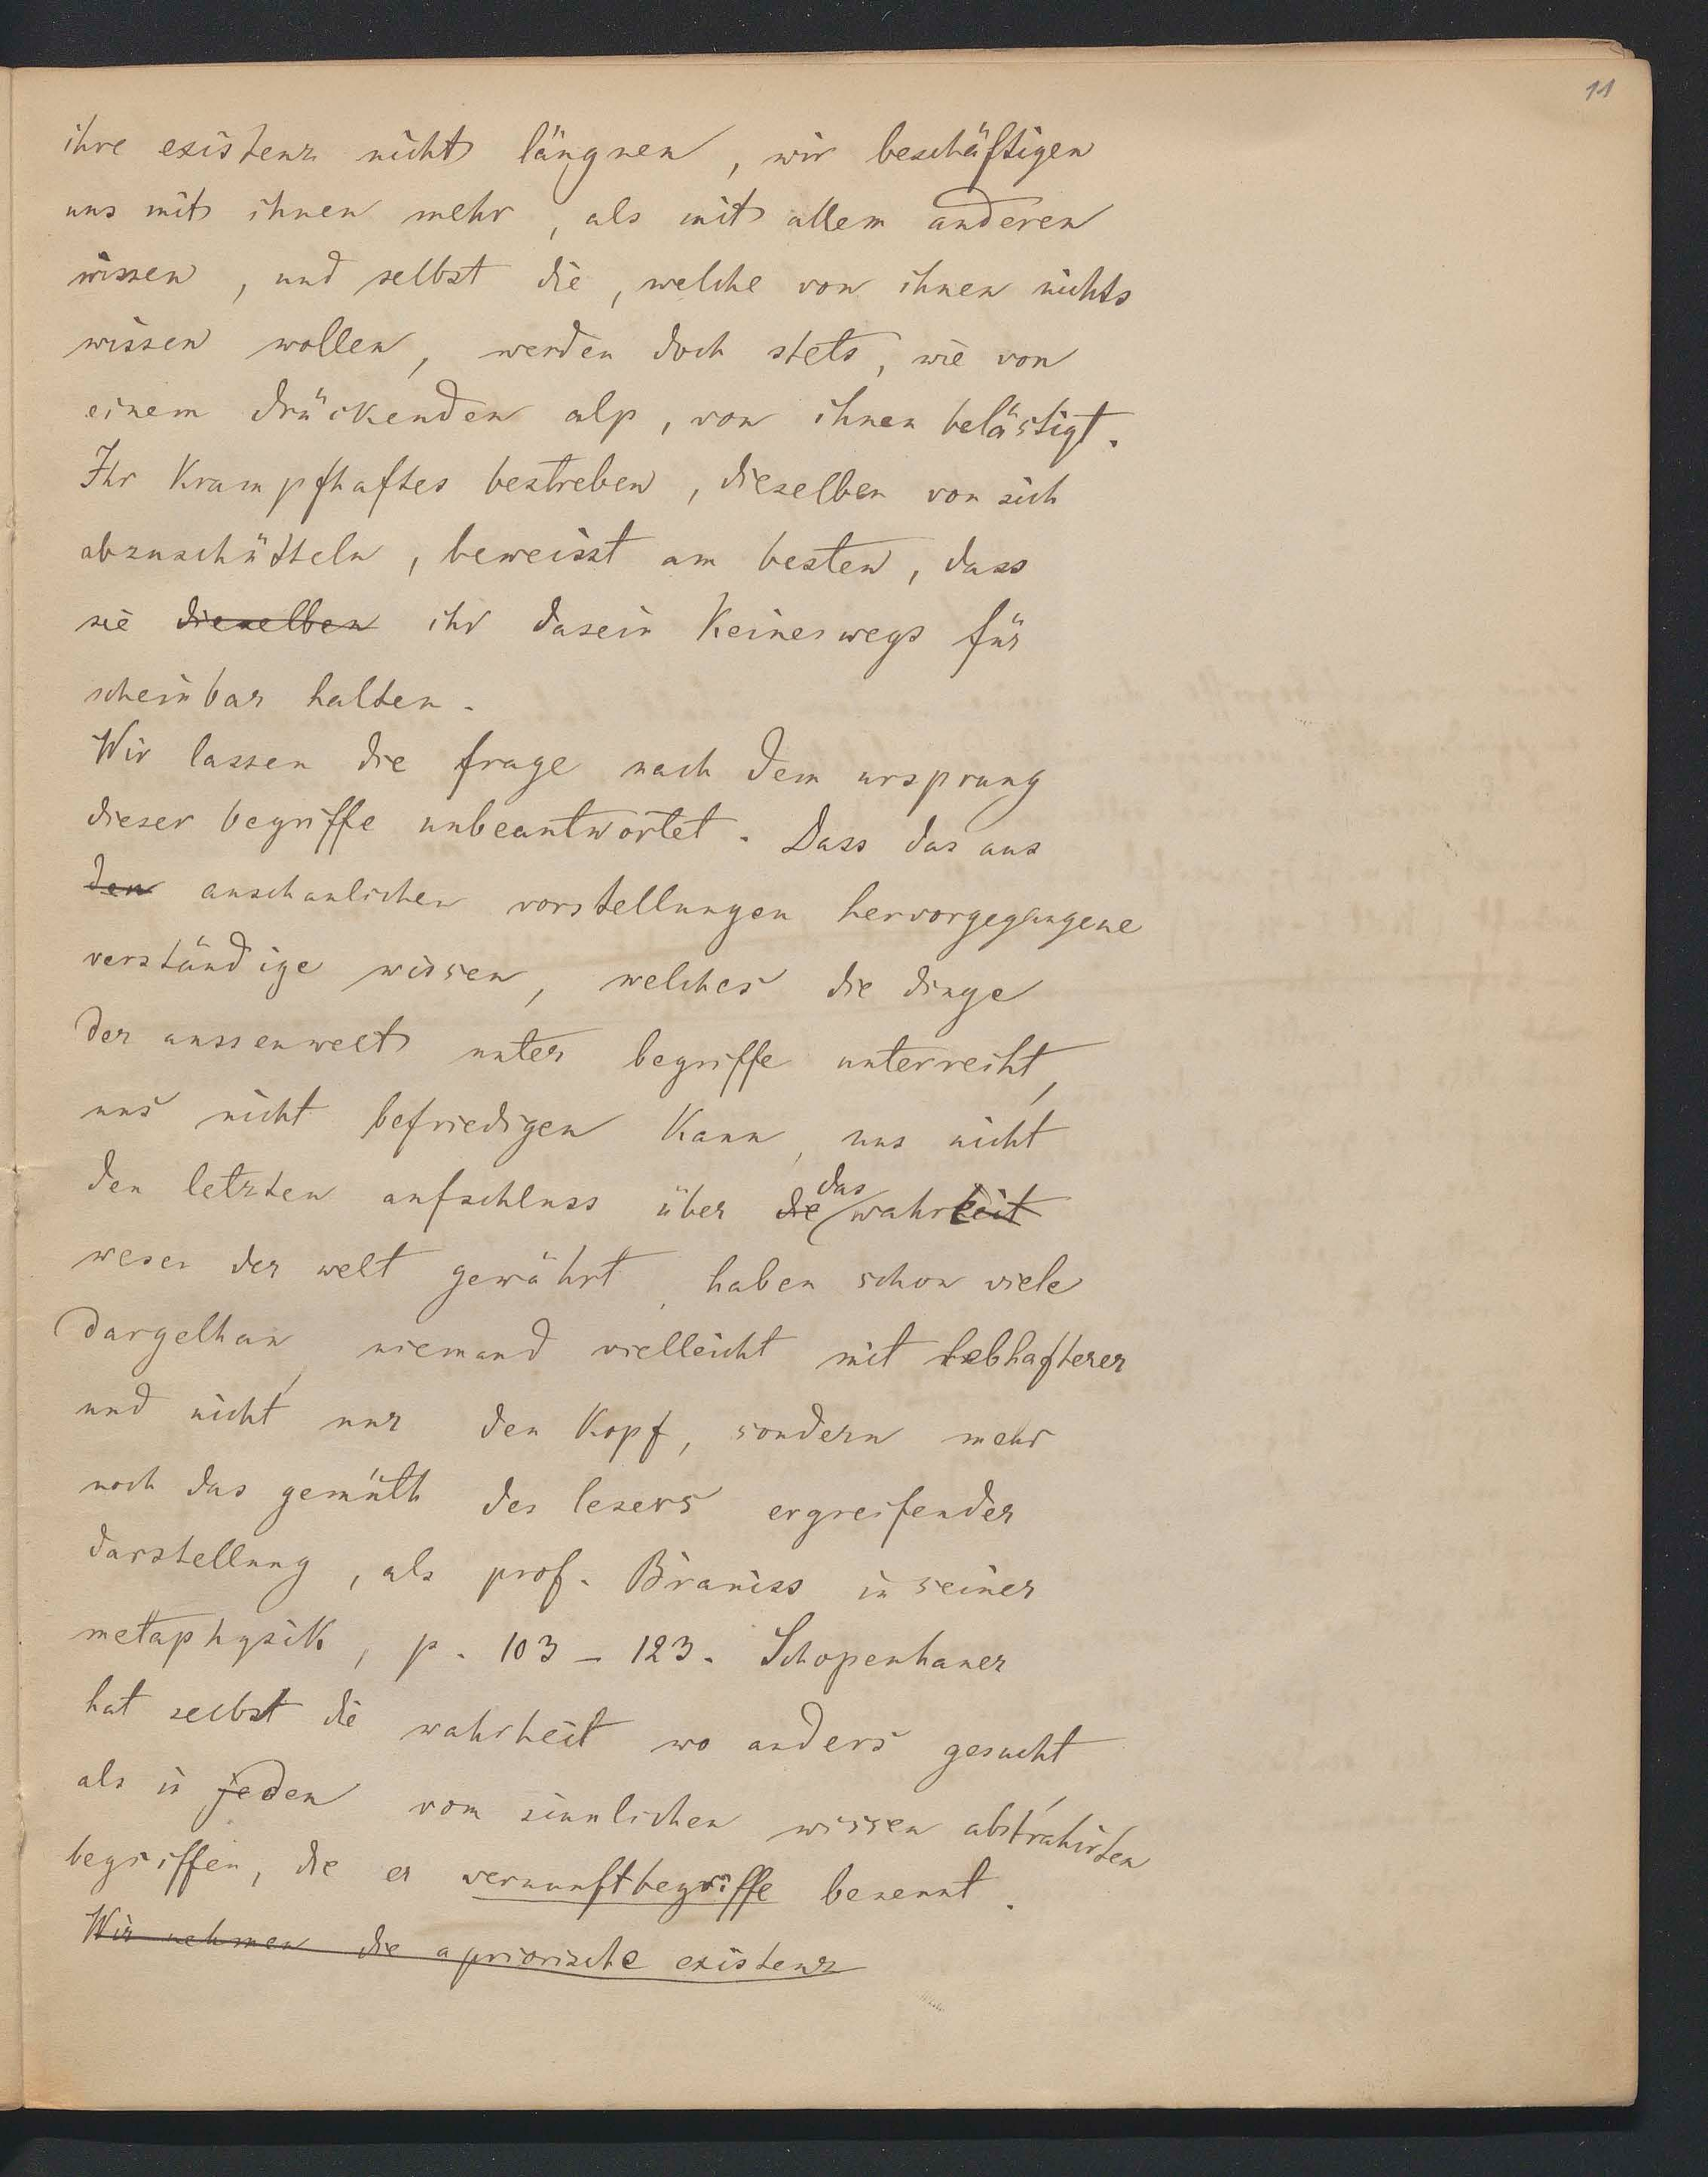 11
ihre existenz nicht läugnen, wir beschäftigen
uns mit ihnen mehr, als mit allem anderen
wissen, und selbst die, welche von ihnen nichts
wissen wollen, werden doch stets, wie von
einem drückenden alp, von ihnen belästigt.
Ihr krampfhaftes bestreben, dieselben von sich
abzuschütteln, beweisst am besten, dass
sie dieselben ihr dasein keineswegs für
scheinbar halten.
Wir lassen die frage nach dem ursprung
dieser begriffe unbeantwortet. Dass das aus
den anschaulichen vorstellungen hervorgegangene
verständige wissen, welches die dinge
der aussenwelt unter begriffe unterreiht,
uns nicht befriedigen kann, uns nicht
den letzten aufschluss über die das wahrheit
wesen der welt gewährt, haben schon viele
dargethan, niemand vielleicht mit lebhafterer
und nicht nur den kopf, sondern mehr
noch das gemüth des lesers ergreifender
darstellung, als prof. Braniss in seiner
metaphysik, p. 103 – 123. Schopenhauer
hat selbst die wahrheit wo anders gesucht,
als in jeden vom sinnlichen wissen abstrahirten
begriffen, die er vernunftbegriffe benennt.
Wir nehmen die apriorische existenz